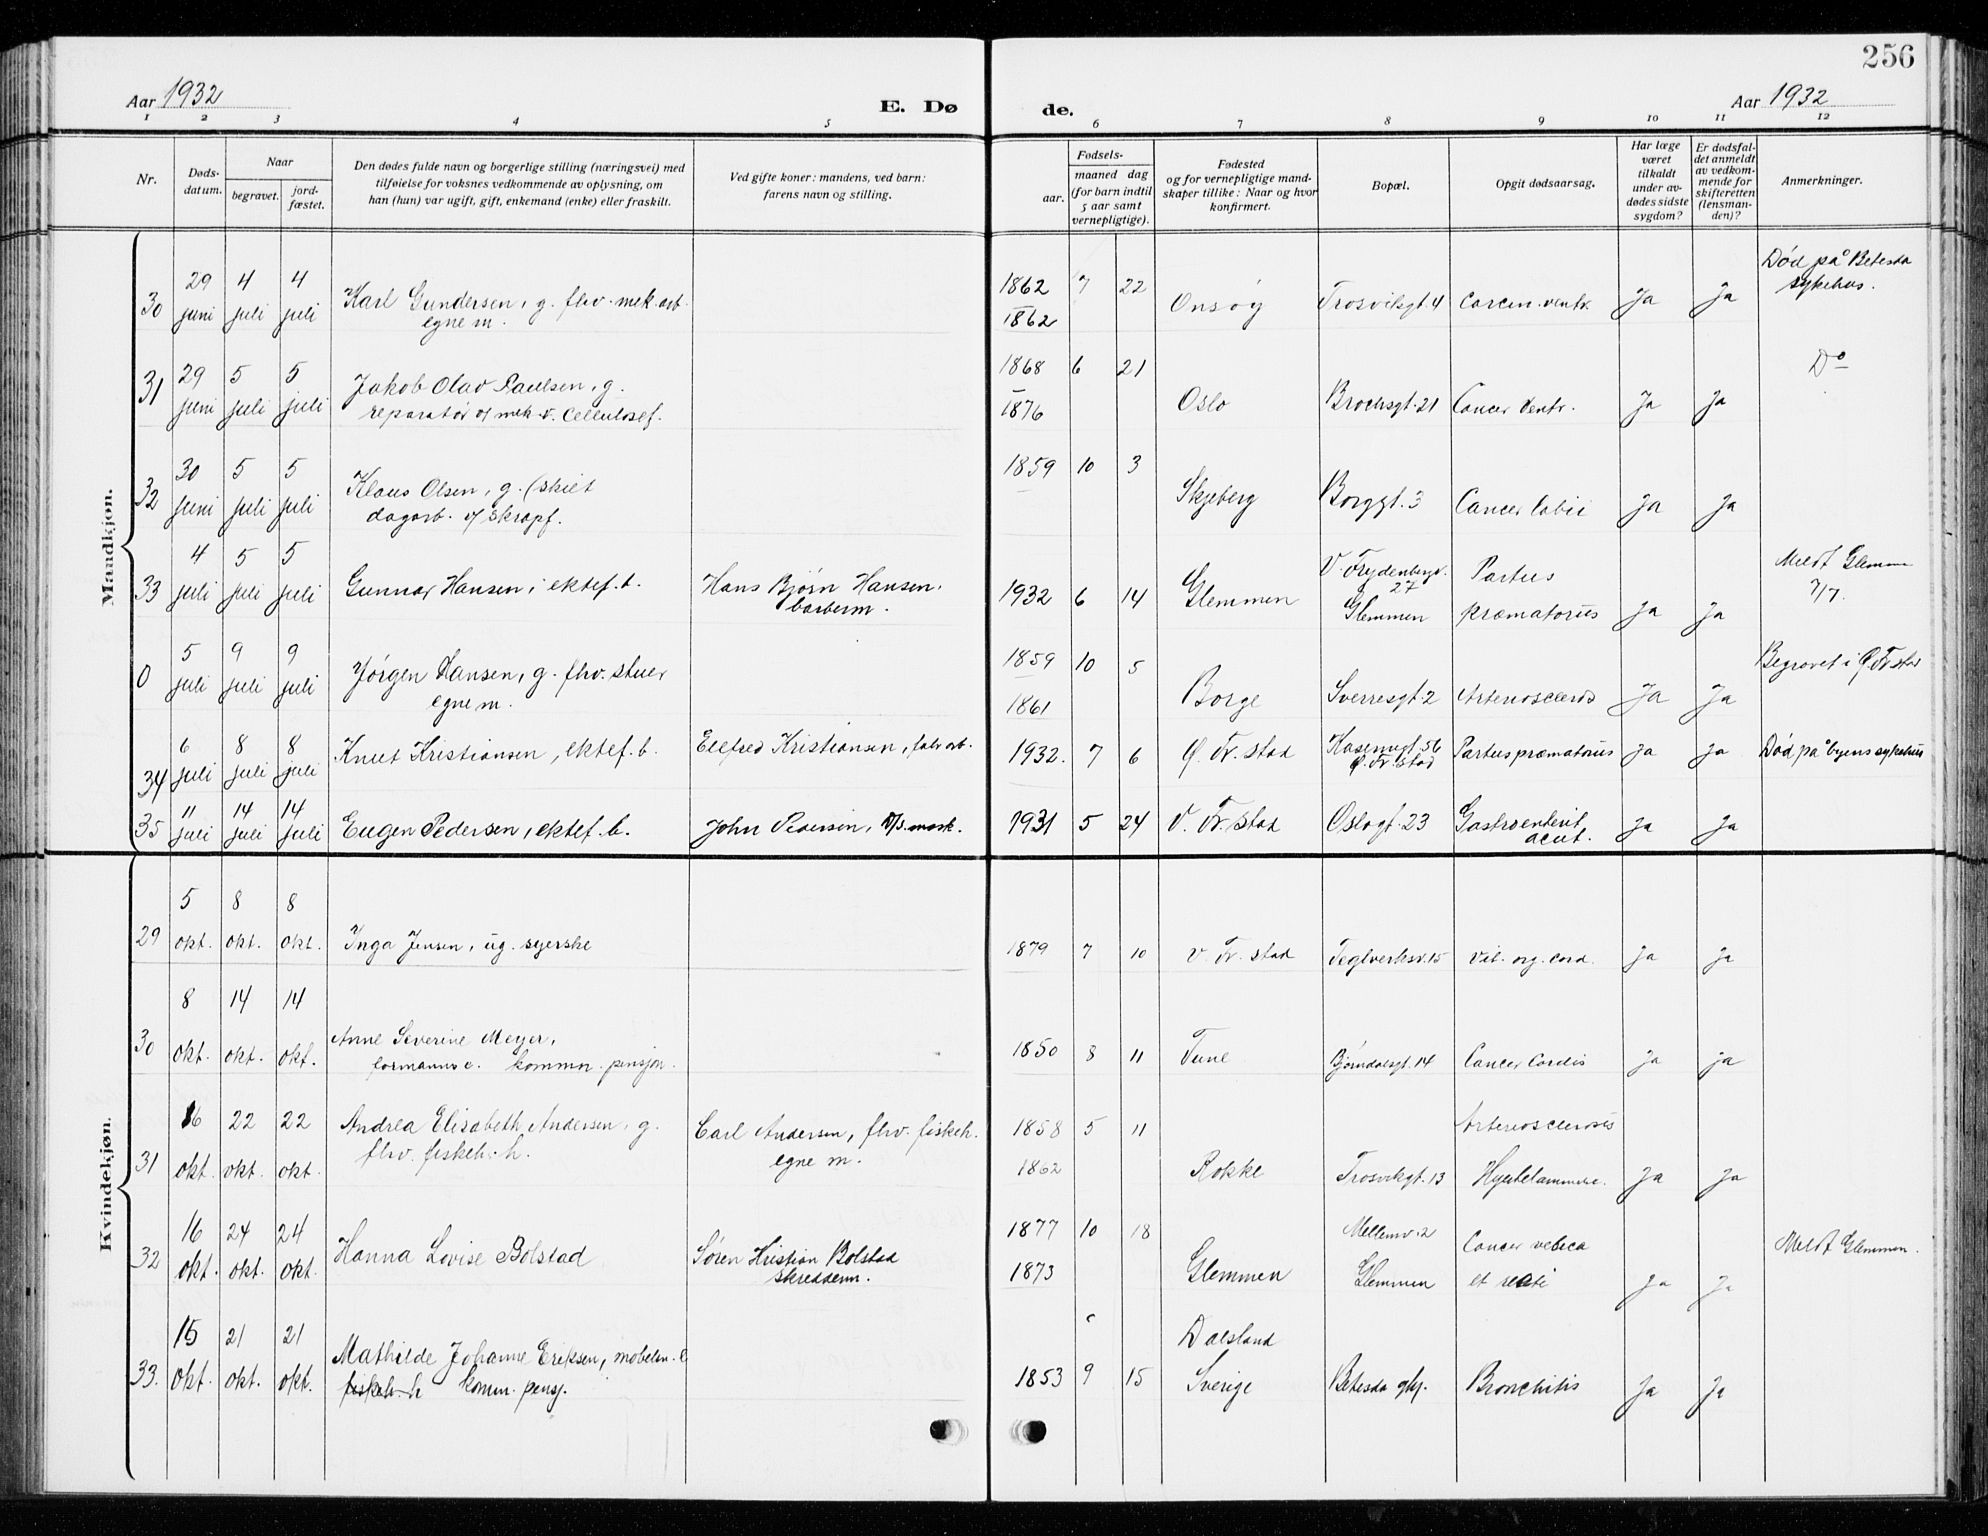 256
Aar 1932
E. Dø de.
Aar 1932
1 2 3 4 5 6 7 8 9 10 11 12
Nr.
Døds-
datum.
Naar
begravet.
jord-
fæstet.
Den dødes fulde navn og borgerlige stilling (næringsvei) med
tilføielse for voksnes vedkommende av oplysning, om
han (hun) var ugift, gift, enkemand (enke) eller fraskilt.
Ved gifte koner: mandens, ved barn:
farens navn og stilling.
Fødsels-
aar. maaned dag
(for barn indtil
5 aar samt
vernepligtige).
Fødested
og for vernepligtige mand-
skaper tillike: Naar og hvor
konfirmert.
Bopæl.
Opgit dødsaarsag.
Har læge
været
tilkaldt
under av-
dødes sidste
sygdom?
Er dødsfal-
det anmeldt
av vedkom-
mende for
skifteretten
(lensman-
den)?
Anmerkninger.
Mandkjøn.
30 29 juni 4 juli 4 juli Karl Gundersen, g. fhv. mek. arb.
egne m.
1862 7 22 Onsøy Trosviksgt. 4 Carcin. ventr. Ja Ja Død på Betesda
sykehus.
1862
31 29 juni 5 juli 5 juli Jakob Olav Paulsen, g.
reparatør v/ mek. v. Cellulosef.
1868 6 21 Oslo Brochsgt. 21 Cancer Ventr. Ja Ja Do
1876
32 30 juni 5 juli 5 juli Klaus Olsen, g. (skilt
dagarb. v/ skrapf.
1859 10 3 Skjeberg Borggt. 3 Cancer Labii Ja Ja
33 4 juli 5 juli 5 juli Gunnar Hansen, ektef. b. Hans Bjørn Hansen,
barberm.
1932 6 14 Glemmen V. Frydenbergv.
27
Glemmen Partus
præmatorius Ja Ja Meldt Glemmen
7/7.
0 5 juli 9 juli 9 juli Jørgen Hansen, g. fhv. stuer
egne m.
1859 10 5 Borge Sverresgt. 2 Arterioscleros Ja Ja Begravet i Ø. Fr.stad
1861
34 6 juli 8 juli 8 juli Knut Kristiansen, ektef. b. Ellefred Kristiansen, fabr. arb.
1932. 7 6 Ø. Fr. stad Kasernegt. 56
Ø. Fr. stad Partus præmatorius Ja Ja Død på byens sykehus
35 11 juli 14 juli 14 juli Eugen Pedersen, ektef. b. John Pedersen, mask.
1931 5 24 V. Fr. stad Oslogt. 23 Gastroenterit
acut. Ja Ja
Kvindekjøn.
29 5 okt. 8 okt. 8 okt. Inga Jensen, ug. syerske
1879 7 10 V. Fr. stad Teglverksv. 15 Vit. org. cord. Ja Ja
30 8 okt. 14 okt. 14 okt. Anne Severine Meyer,
formanns e. kommn. pensjon.
1850 8 11 Tune Bjørndalsgt. 14 Cancer Cordis Ja Ja
31 16 okt. 22 okt. 22 okt. Andrea Elisabeth Andersen, g.
fhv. fiskeh. h. Carl Andersen, fhv. fiskeh.
egne m.
1858 5 11 Rokke Trosvikgt. 13 Arteriosclerosis
Hjertelammelse. Ja Ja
1862
32 16 okt. 24 okt. 24 okt. Hanna Lovise Bolstad Søren Kristian Bolstad
skredderm.
1877 10 18 Glemmen Mellemv. 2
Glemmen Cancer vesica
et recti Ja Ja Meldt Glemmen.
1873
33. 15 okt. 21 okt. 21 okt. Mathilde Johanne Eriksen, møbelsn. e
fiskeh. h komm. pensj.
1853 9 15 Dalsland
Sverige Betesda Bronchitis Ja Ja